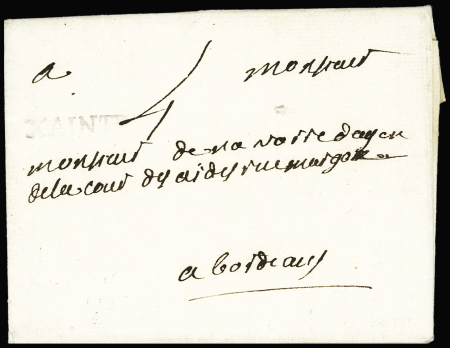 a monsieur
4
XAINT
monsieur de navarre doyen
de la cour des aides rue margaux
a bordeaux